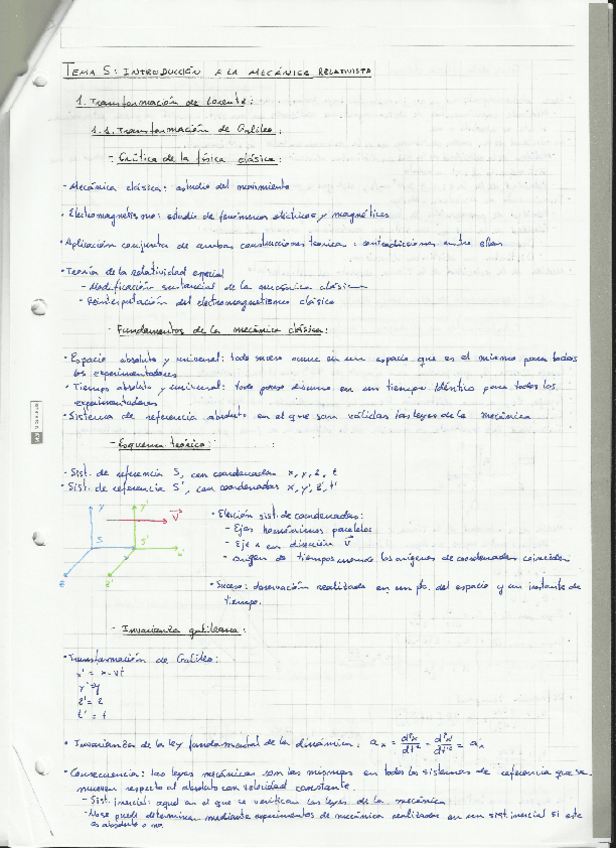 TEMA 5: INTRODUCCIÓN A LA MECÁNICA RELATIVISTA
1. Transformación de Lorentz:
1.1. Transformación de Galileo:
- Crítica de la física clásica:
- Mecánica clásica: estudio del movimiento
· Electromagnetismo: estudio de fenómenos eléctricos y magnéticos
· Aplicación conjunta de ambas construcciones teóricas: contradicciones entre ellas
· Teoría de la relatividad especial
- Modificación sustancial de la mecánica clásica
- Reinterpretación del electromagnetismo clásico
- Fundamentos de la mecánica clásica:
· Espacio absoluto y universal: todo suceso ocurre en un espacio que es el mismo para todos
los experimentadores
· Tiempo absoluto y universal: todo proceso discurre en un tiempo idéntico para todos los
experimentadores
· Sistema de referencia absoluto en el que son válidas las leyes de la mecánica
- Esquema teórico:
· Sist. de referencia S, con coordenadas x, y, z, t
· Sist. de referencia S', con coordenadas x', y', z', t'
y y' V
S S' x'
z z'
· Elección sist. de coordenadas:
- Ejes homónimos paralelos
- Eje x en dirección V
- origen de tiempos cuando los orígenes de coordenadas coinciden
· Suceso: observación realizada en un pto. del espacio y un instante de
tiempo.
- Invarianza galileana:
· Transformación de Galileo:
x' = x - vt
y' = y
z' = z
t' = t
· Invarianza de la ley fundamental de la dinámica: aₓ = d²x/dt² = d²x'/dt'² = aₓ
· Consecuencia: las leyes mecánicas son las mismas en todos los sistemas de referencia que se
mueven respecto al absoluto con velocidad constante.
- Sist. inercial: aquel en el que se verifican las leyes de la mecánica
- No se puede determinar mediante experimentos de mecánica realizados en un sist. inercial si este
es absoluto o no.